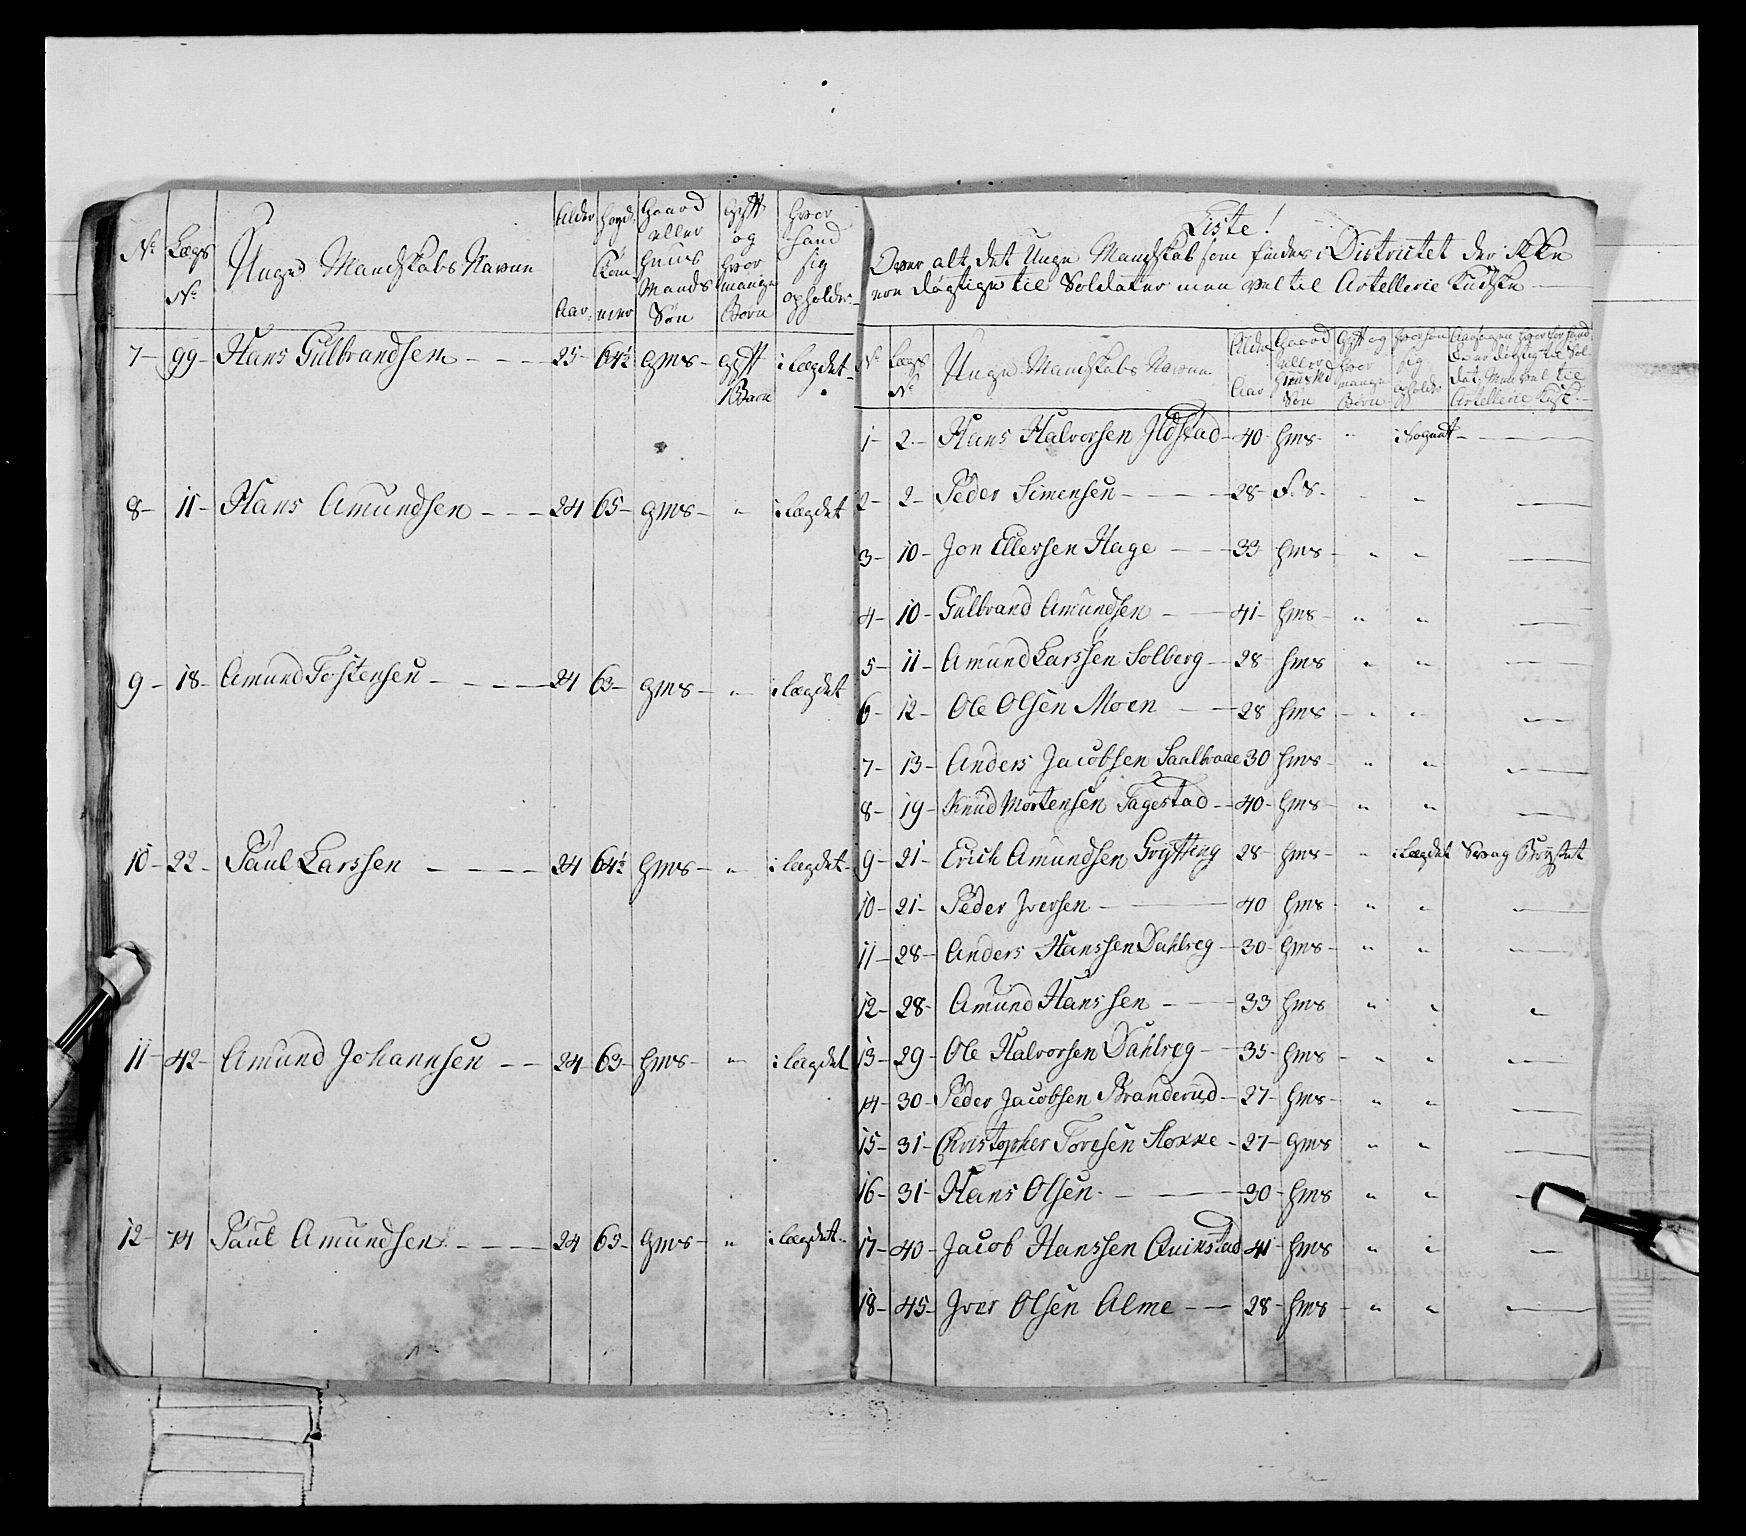 N: Lægs N: Unge Mandskabs Navne Alder Aar. Høyde Tom: mer Gaard eller Huus Mands Søn Gift og hvor mange Børn hvor hand sig opholder
7- 99- Hans Gulbrandsen - - - 25- 64½ gms- gift 1 Barn i Lægdet
8- 11- Hans Amundsen - - - 24 65- gms- " i Lægdet
9- 18- Amund Tostensen - - - 24 63- gms- " i Lægdet
10- 22- Paul Larssen - - - 24 64½ hms- " i Lægdet
11- 42- Amund Johannsen - - 24- 63- hms- " i Lægdet
12- 74 Paul Amundsen - - - 24 65- gms- " i Lægdet
Liste!
Over alt det Unge Mandskab som findes i Districtet der ikke
ere dygtige til Soldater men vel til Artellerie Kudske
N: Lægs N: Unge Mandskabs Navne Alder Aar Gaard eller Huus Md Søn Gift og hvor mange Børn hvor hen sig opholder Aarsagen hvorfor hand Ey er dygtig til Sol dat, Men vel til Artellerie Kusk
1- 2- Hans Halvorsen Ildstad- 40- hms- " i Sognet -
2- 2- Peder Simensen - - - 28- F.S- "
3- 10- Jon Ellersen Hage - - 33- hms- " "
4- 10- Gulbrand Amundsen - 41- hms- " "
5- 11- Amund Larssen Solberg- 28- hms " "
6- 12- Ole Olsen Moen - - 28 hms- " "
7- 13- Anders Jacobsen Saalbraae 30 hms- " "
8- 19- Knud Mortensen Fagestad - 40- hms- " "
9- 21- Erich Amundsen Grytting 28- hms- " i Lægdet Svag Brystet
10- 21- Peder Iversen - 40 hms- " "
11- 28- Anders Hanssen Dahlreg- 30- hms- " "
12- 28- Amund Hanssen - 33 hms " "
13- 29- Ole Halvorsen Dahlreg- 35- hms- " "
14- 30- Peder Jacobsen Branderud- 27- hms- " "
15- 31- Christopher Toresen Stokke - 27- gms " "
16- 31- Hans Olsen - 30- hms " "
17- 40- Jacob Hanssen Quikstad 41- hms " "
18- 45- Iver Olsen Alme - - 28- hms- " "